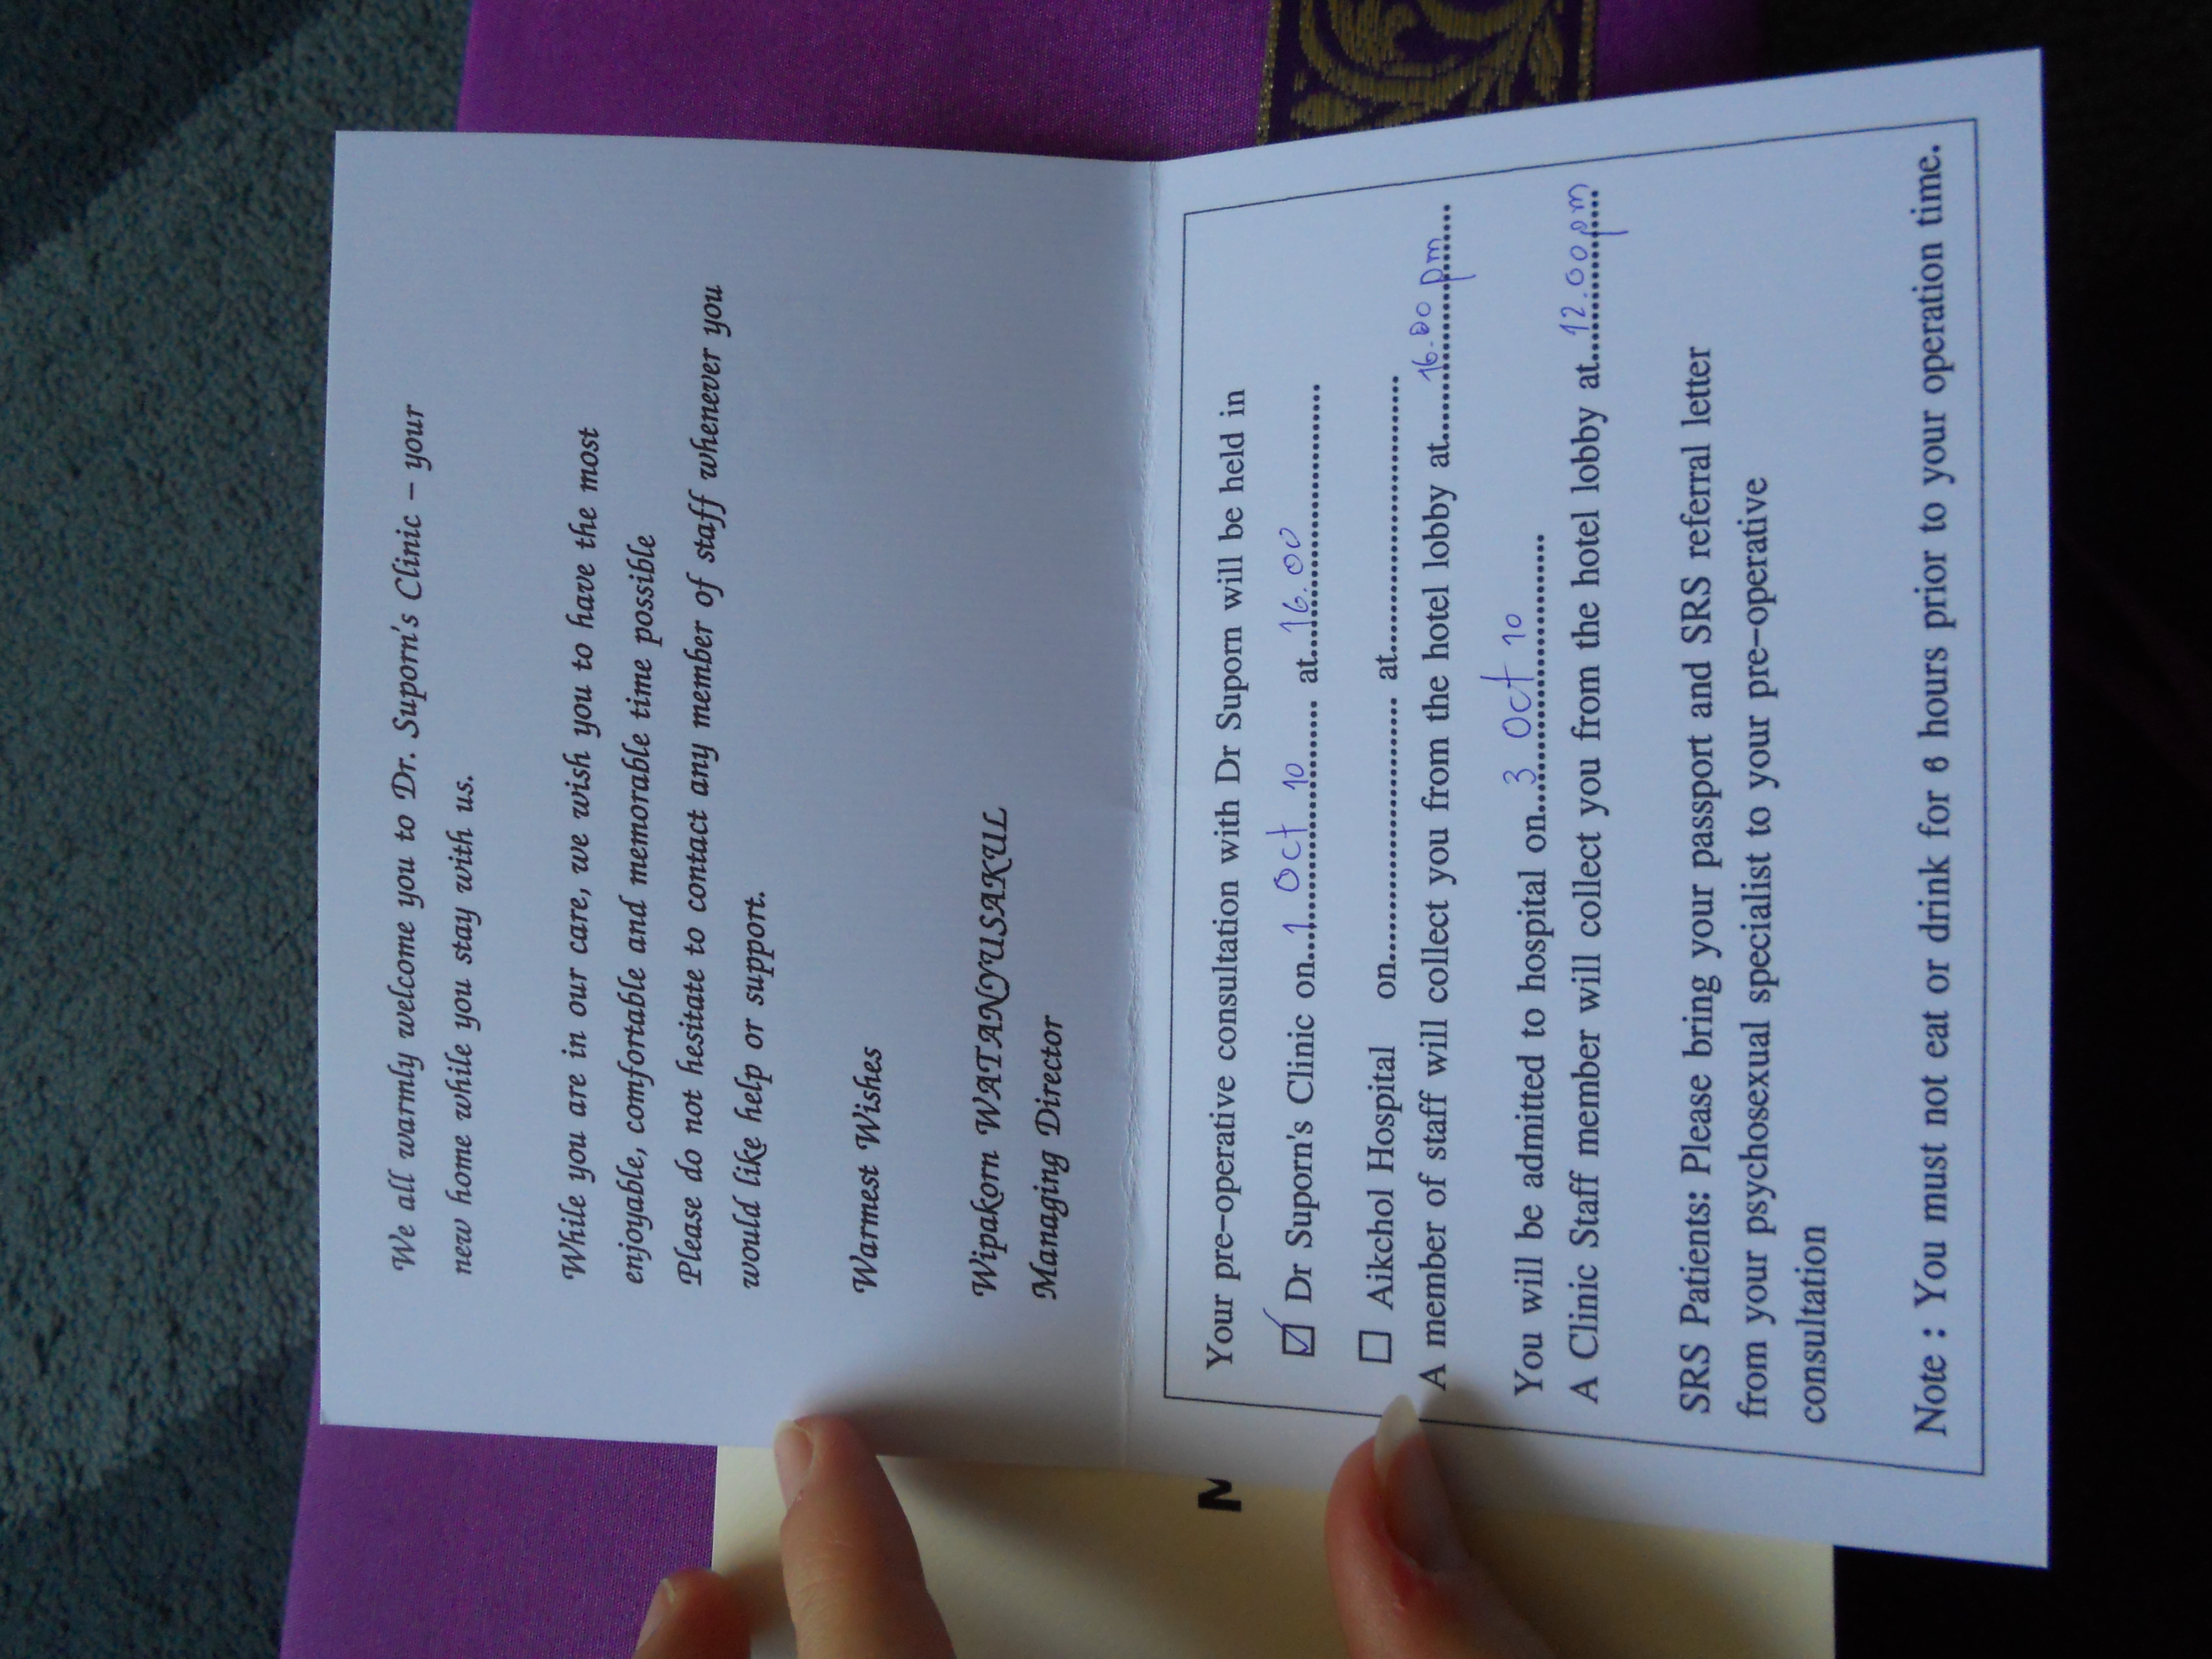 We all warmly welcome you to Dr. Suporn's Clinic – your
new home while you stay with us.
While you are in our care, we wish you to have the most
enjoyable, comfortable and memorable time possible
Please do not hesitate to contact any member of staff whenever you
would like help or support.
Warmest Wishes
Wipakorn WATANYUSAKUL
Managing Director
M
Your pre-operative consultation with Dr Suporn will be held in
☑ Dr Suporn's Clinic on...1 Oct 10... at...16.00...
☐ Aikchol Hospital on............................ at............................
A member of staff will collect you from the hotel lobby at...16.00 pm...
You will be admitted to hospital on...3 Oct 10...
A Clinic Staff member will collect you from the hotel lobby at...12.00pm...
SRS Patients: Please bring your passport and SRS referral letter
from your psychosexual specialist to your pre-operative
consultation
Note : You must not eat or drink for 6 hours prior to your operation time.